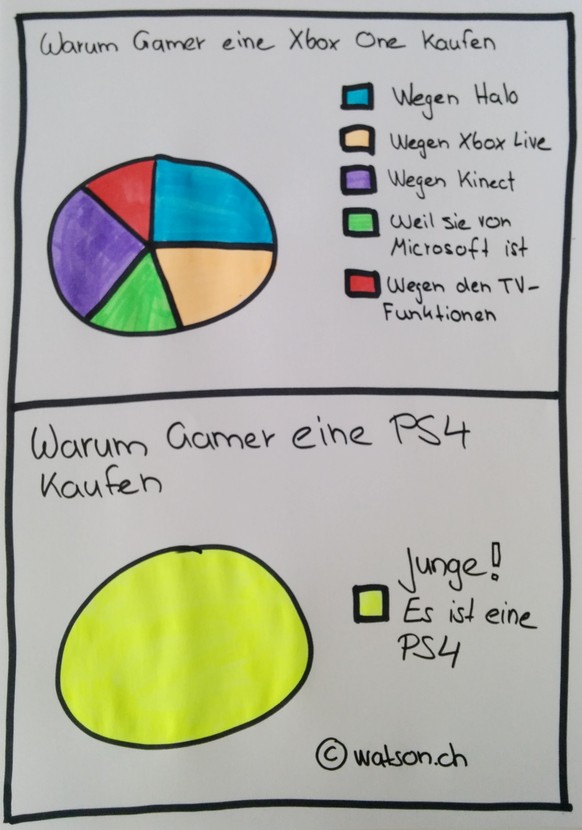 Warum Gamer eine Xbox One Kaufen
Wegen Halo
Wegen Xbox Live
Wegen Kinect
Weil sie von
Microsoft ist
Wegen den TV-
Funktionen
Warum Gamer eine PS4
Kaufen
Junge!
Es ist eine
PS4
© watson.ch